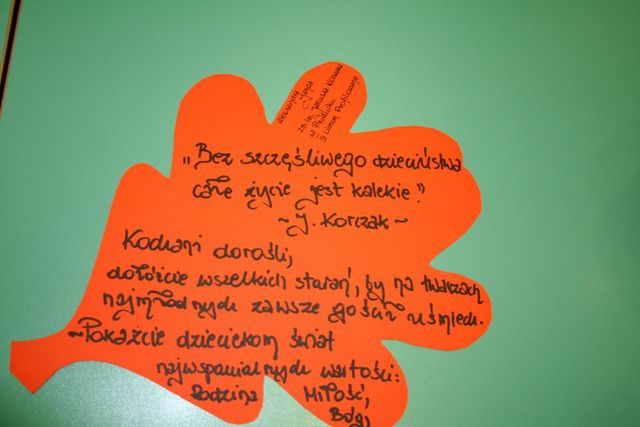 „Bez szczęśliwego dzieciństwa
całe życie jest kalekie.”
~ J. Korczak ~
Kochani dorośli,
dołóżcie wszelkich starań, by na twarzach
najmłodszych zawsze gościł uśmiech.
~Pokażcie dzieciekom świat
najwspanialszych wartości:
Rodzina Miłość,
Bóg,